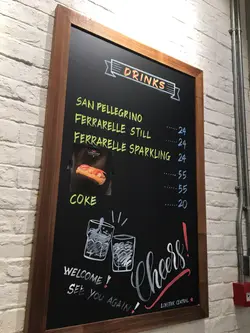 DRINKS
SAN PELLEGRINO ..... 24
FERRARELLE STILL ..... 24
FERRARELLE SPARKLING ..... 24
..... 55
..... 55
COKE ..... 20
WELCOME!
SEE YOU AGAIN!
Cheers!